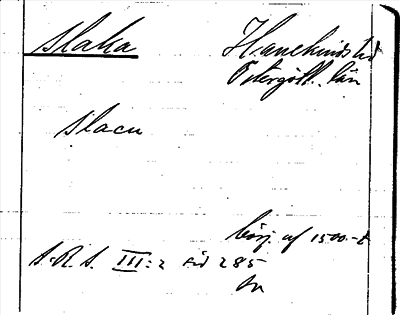 Slaka Hanekinds hd
Östergötl. län
Slacu
börj. af 1500-t
S. R. S. III:2 sid 285